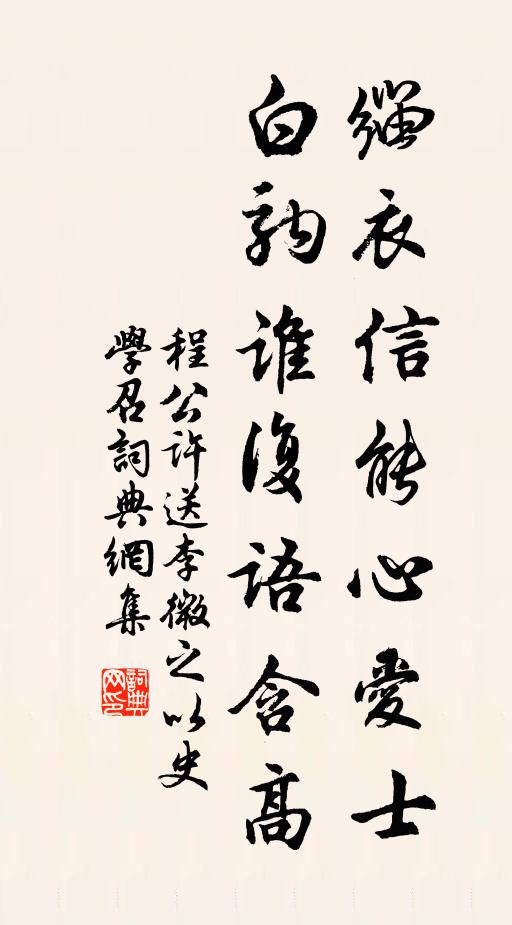 緇衣信能心愛士
白韵誰復語含高
程公許送李微之以史
學召詞典網集
詞典网印